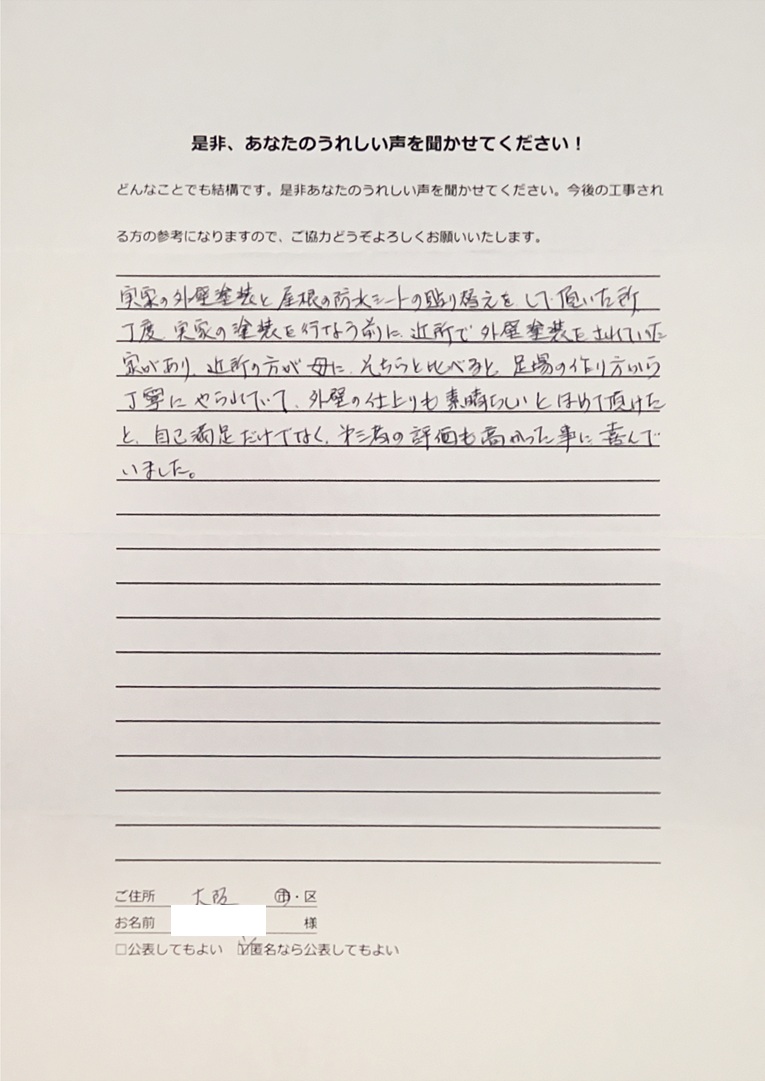 是非、あなたのうれしい声を聞かせてください！
どんなことでも結構です。是非あなたのうれしい声を聞かせてください。今後の工事され
る方の参考になりますので、ご協力どうぞよろしくお願いいたします。
実家の外壁塗装と屋根の防水シートの貼り替えをして頂いた所
丁度、実家の塗装を行なう前に、近所で外壁塗装をされていた
家があり、近所の方が母に、そちらと比べると、足場の作り方から
丁寧にやられていて、外壁の仕上りも素晴らしいとほめて頂けた
と、自己満足だけでなく、第三者の評価も高かった事に喜んで
いました。
ご住所 大阪 市・区
お名前 様
□公表してもよい ☑匿名なら公表してもよい